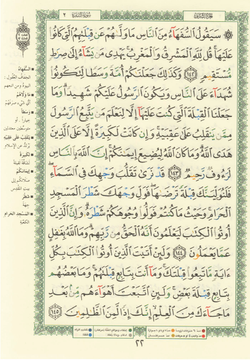 سُورَةُ البَقَرَةِ
٢
سَيَقُولُ ٱلسُّفَهَآءُ مِنَ ٱلنَّاسِ مَا وَلَّىٰهُمْ عَن قِبْلَتِهِمُ ٱلَّتِى كَانُوا۟
عَلَيْهَا ۚ قُل لِّلَّهِ ٱلْمَشْرِقُ وَٱلْمَغْرِبُ ۚ يَهْدِى مَن يَشَآءُ إِلَىٰ صِرَٰطٍ
مُّسْتَقِيمٍ ١٤٢ وَكَذَٰلِكَ جَعَلْنَٰكُمْ أُمَّةً وَسَطًا لِّتَكُونُوا۟
شُهَدَآءَ عَلَى ٱلنَّاسِ وَيَكُونَ ٱلرَّسُولُ عَلَيْكُمْ شَهِيدًا ۗ وَمَا
جَعَلْنَا ٱلْقِبْلَةَ ٱلَّتِى كُنتَ عَلَيْهَآ إِلَّا لِنَعْلَمَ مَن يَتَّبِعُ ٱلرَّسُولَ
مِمَّن يَنقَلِبُ عَلَىٰ عَقِبَيْهِ ۚ وَإِن كَانَتْ لَكَبِيرَةً إِلَّا عَلَى ٱلَّذِينَ
هَدَى ٱللَّهُ ۗ وَمَا كَانَ ٱللَّهُ لِيُضِيعَ إِيمَٰنَكُمْ ۚ إِنَّ ٱللَّهَ بِٱلنَّاسِ
لَرَءُوفٌ رَّحِيمٌ ١٤٣ قَدْ نَرَىٰ تَقَلُّبَ وَجْهِكَ فِى ٱلسَّمَآءِ ۖ
فَلَنُوَلِّيَنَّكَ قِبْلَةً تَرْضَىٰهَا ۚ فَوَلِّ وَجْهَكَ شَطْرَ ٱلْمَسْجِدِ
ٱلْحَرَامِ ۚ وَحَيْثُ مَا كُنتُمْ فَوَلُّوا۟ وُجُوهَكُمْ شَطْرَهُۥ ۗ وَإِنَّ ٱلَّذِينَ
أُوتُوا۟ ٱلْكِتَٰبَ لَيَعْلَمُونَ أَنَّهُ ٱلْحَقُّ مِن رَّبِّهِمْ ۗ وَمَا ٱللَّهُ بِغَٰفِلٍ
عَمَّا يَعْمَلُونَ ١٤٤ وَلَئِنْ أَتَيْتَ ٱلَّذِينَ أُوتُوا۟ ٱلْكِتَٰبَ بِكُلِّ
ءَايَةٍ مَّا تَبِعُوا۟ قِبْلَتَكَ ۚ وَمَآ أَنتَ بِتَابِعٍ قِبْلَتَهُمْ ۚ وَمَا بَعْضُهُم
بِتَابِعٍ قِبْلَةَ بَعْضٍ ۚ وَلَئِنِ ٱتَّبَعْتَ أَهْوَآءَهُم مِّنۢ بَعْدِ
مَا جَآءَكَ مِنَ ٱلْعِلْمِ ۙ إِنَّكَ إِذًا لَّمِنَ ٱلظَّٰلِمِينَ ١٤٥
٢٢